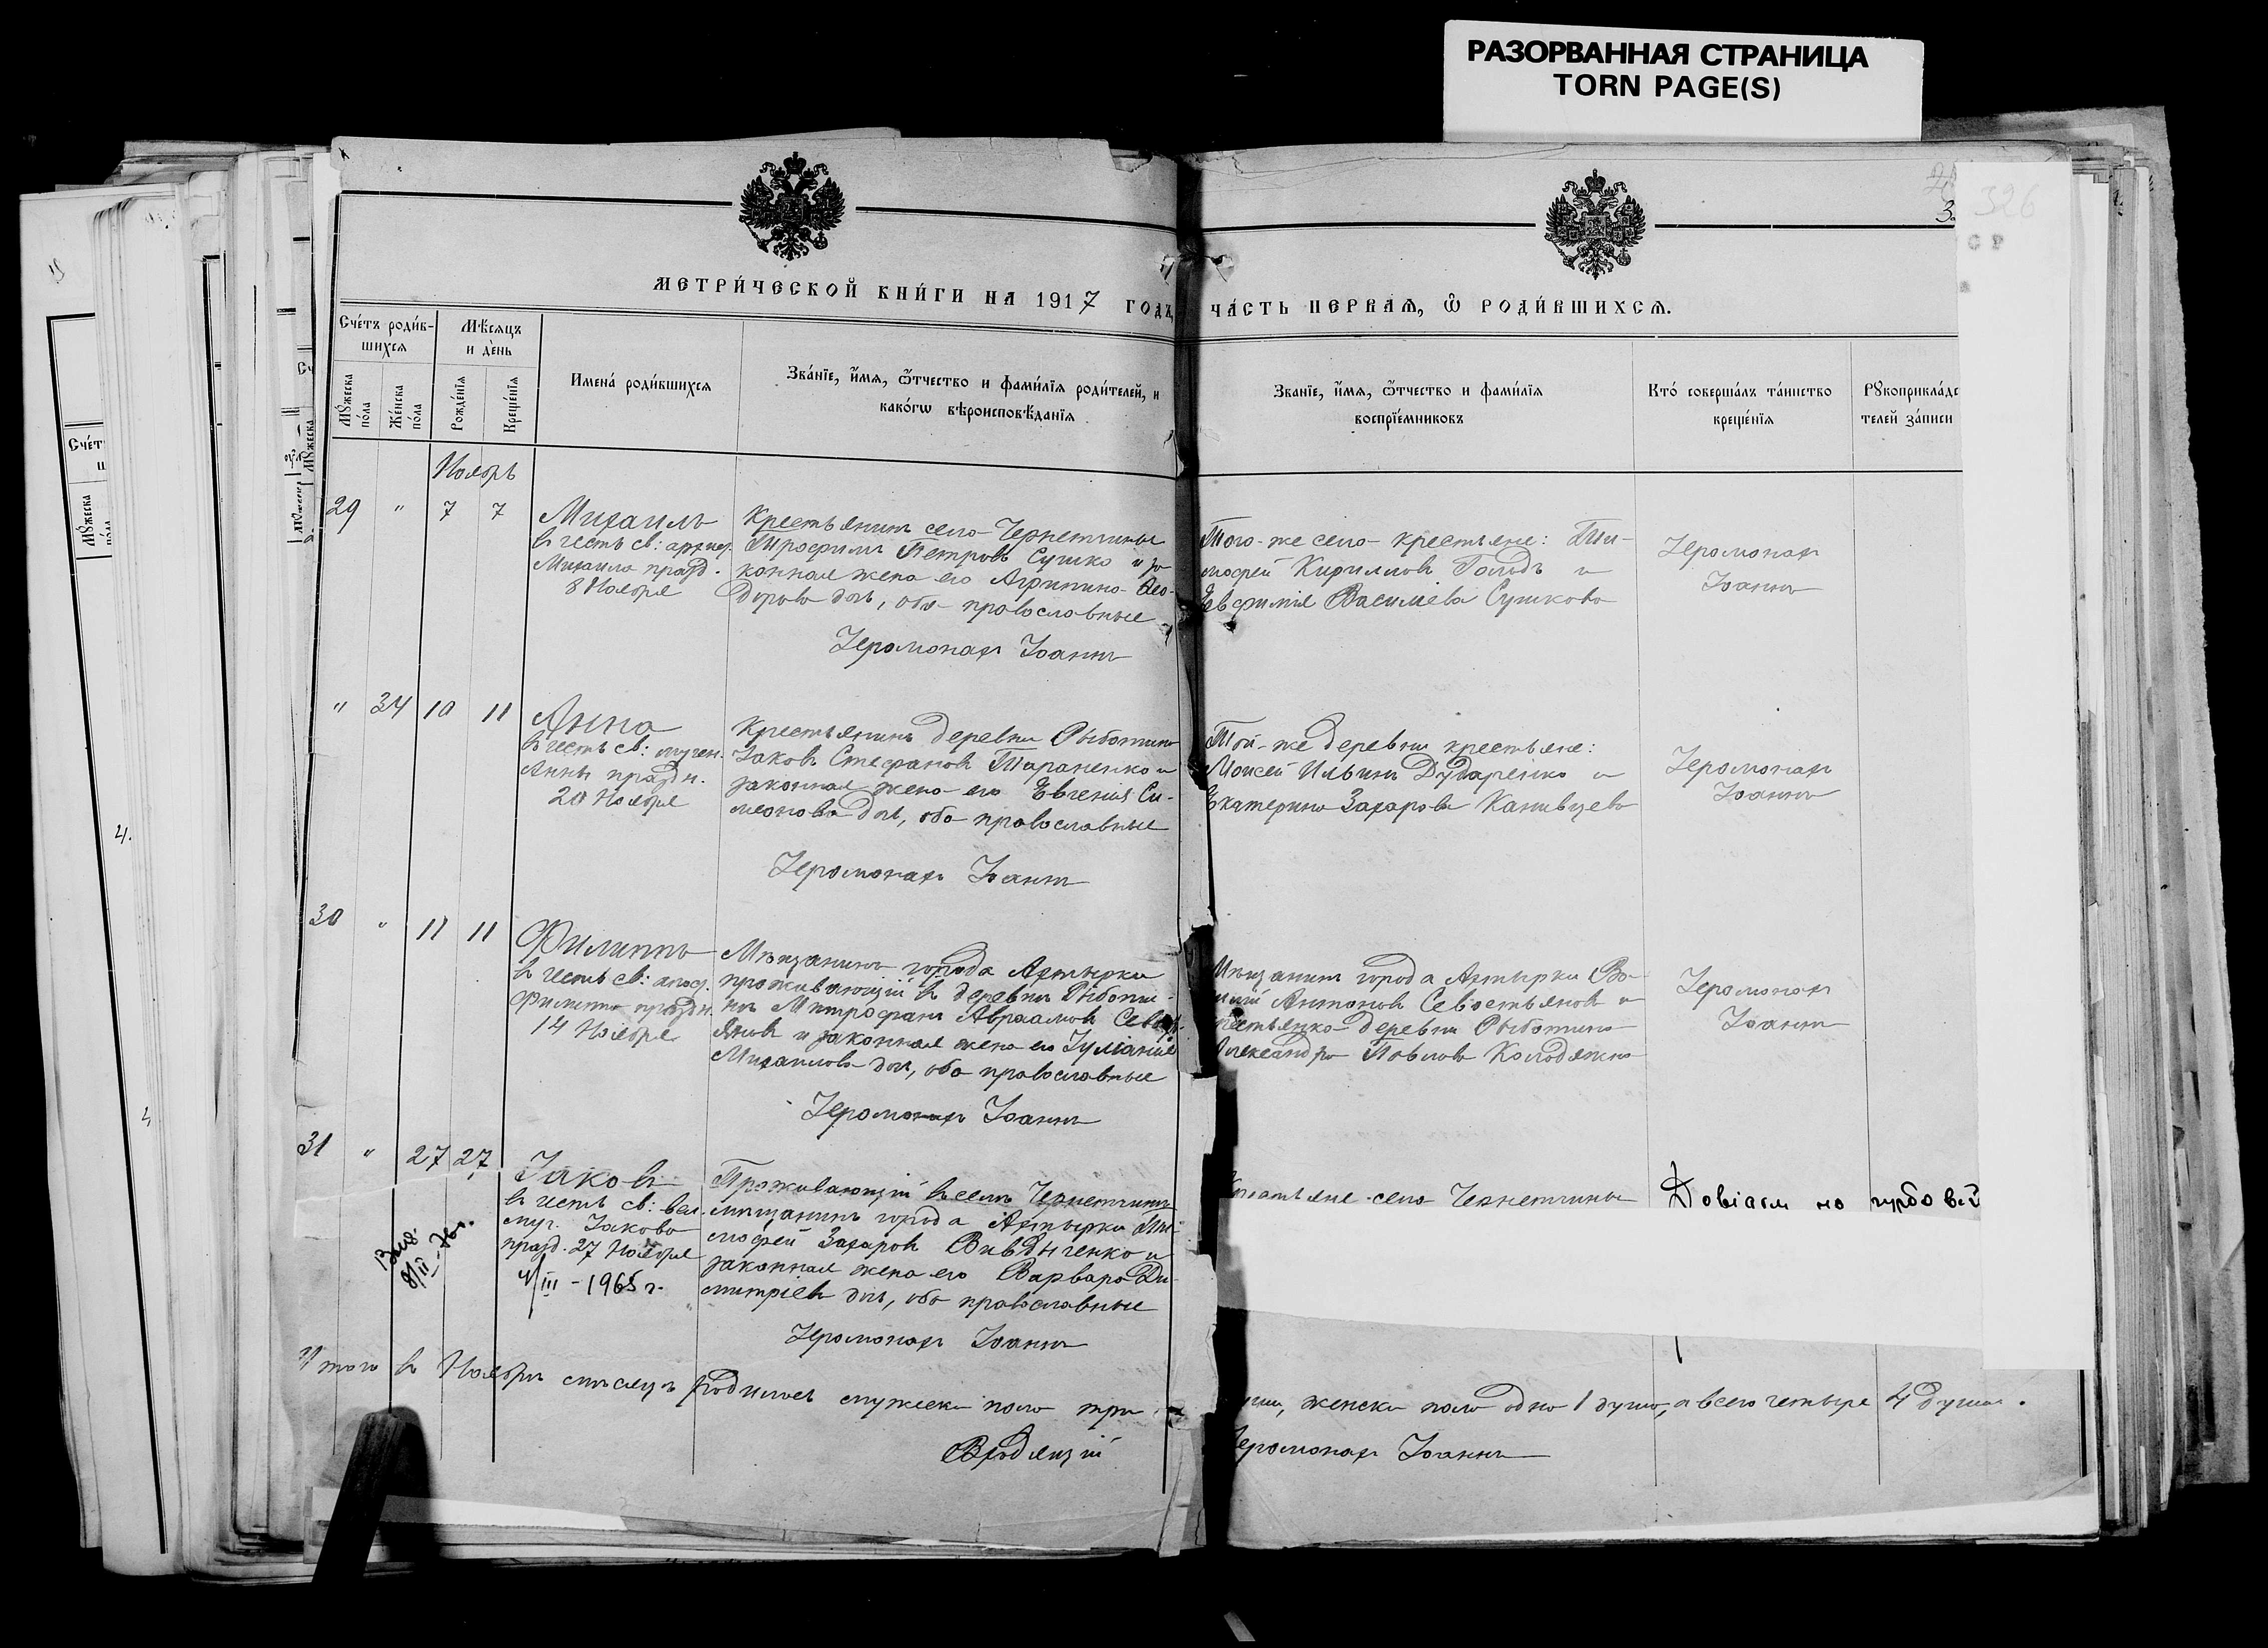 РАЗОРВАННАЯ СТРАНИЦА
TORN PAGE(S)
326
МЕТРИ́ЧЕСКОЙ КНИ́ГИ НА 1917 ГОДЪ,
ЧА́СТЬ ПЕРВАѦ, Ѽ РОДИ́ВШИХСѦ.
Сче́тъ роди́в-
шихсѧ
Мꙋ́жеска
по́ла
Же́нска
по́ла
Мѣ́сѧцъ
и де́нь
Рожде́нїѧ
Креще́нїѧ
Имена́ роди́вшихсѧ
Зва́нїе, и҆́мѧ, ѻ҆́тчество и фами́лїѧ роди́телей, и
како́гѡ вѣроисповѣ́данїѧ
Зва́нїе, и҆́мѧ, ѻ҆́тчество и фами́лїѧ
воспрїе́мниковъ
Кто́ соверша́лъ та́инство
креще́нїѧ
Рꙋкоприкла́дс
телей за́писи
Ноябрь
29 " 7 7
Михаилъ
в честь св: архис.
Михаила празд.
8 Ноября
Крестьянинъ села Чернетчины
Трофимъ Петровъ Сушко и за
конная жена его Агрипина Ѳео-
дорова дочь, оба православные
Іеромонахъ Іоаннъ
Того-же села крестьяне: Ти-
мофей Кирилловъ Голодъ и
Евфимія Васильева Сушкова
Іеромонахъ
Іоаннъ
" 34 10 11
Анна
в честь св: мучен.
Анны праздн.
20 Ноября
Крестьянинъ деревни Рыботини
Іаковъ Стефановъ Тараненко и
законная жена его Евгенія Си-
меонова дочь, оба православные
Іеромонахъ Іоаннъ
Той-же деревни крестьяне:
Моисей Ильинъ Дударенко и
Екатерина Захарова Канивцева
Іеромонахъ
Іоаннъ
30 " 11 11
Филиппъ
в честь св: апос.
Филиппа праздн.
14 Ноября
Мѣщанинъ города Ахтырки
проживающій в деревни Рыботи-
нѣ Митрофанъ Авраамовъ Севасть
яновъ и законная жена его Іуліанія
Михаилова дочь, оба православные
Іеромонахъ Іоаннъ
Мѣщанинъ города Ахтырки Ва-
илій Антоновъ Севостьяновъ и
рестьянка деревни Рыботина
лександра Павлова Колодяжна
Іеромонахъ
Іоаннъ
31 " 27 27
Іаковъ
в честь св: вел.
муч. Іакова
празд. 27 Ноября
4/III - 1965 г.
8/II
Проживающій в селѣ Чернетчинѣ
мѣщанинъ города Ахтырки Ти-
мофей Захаровъ Вивдиченко и
законная жена его Варвара Ди-
митріева дочь, оба православные
Іеромонахъ Іоаннъ
рестьяне села Чернетчины
Итого в Ноябрѣ мѣсяцѣ родилось мужеска пола три
уши, женска пола одна 1 душа, а всего четыре 4 души.
еромонахъ Іоаннъ